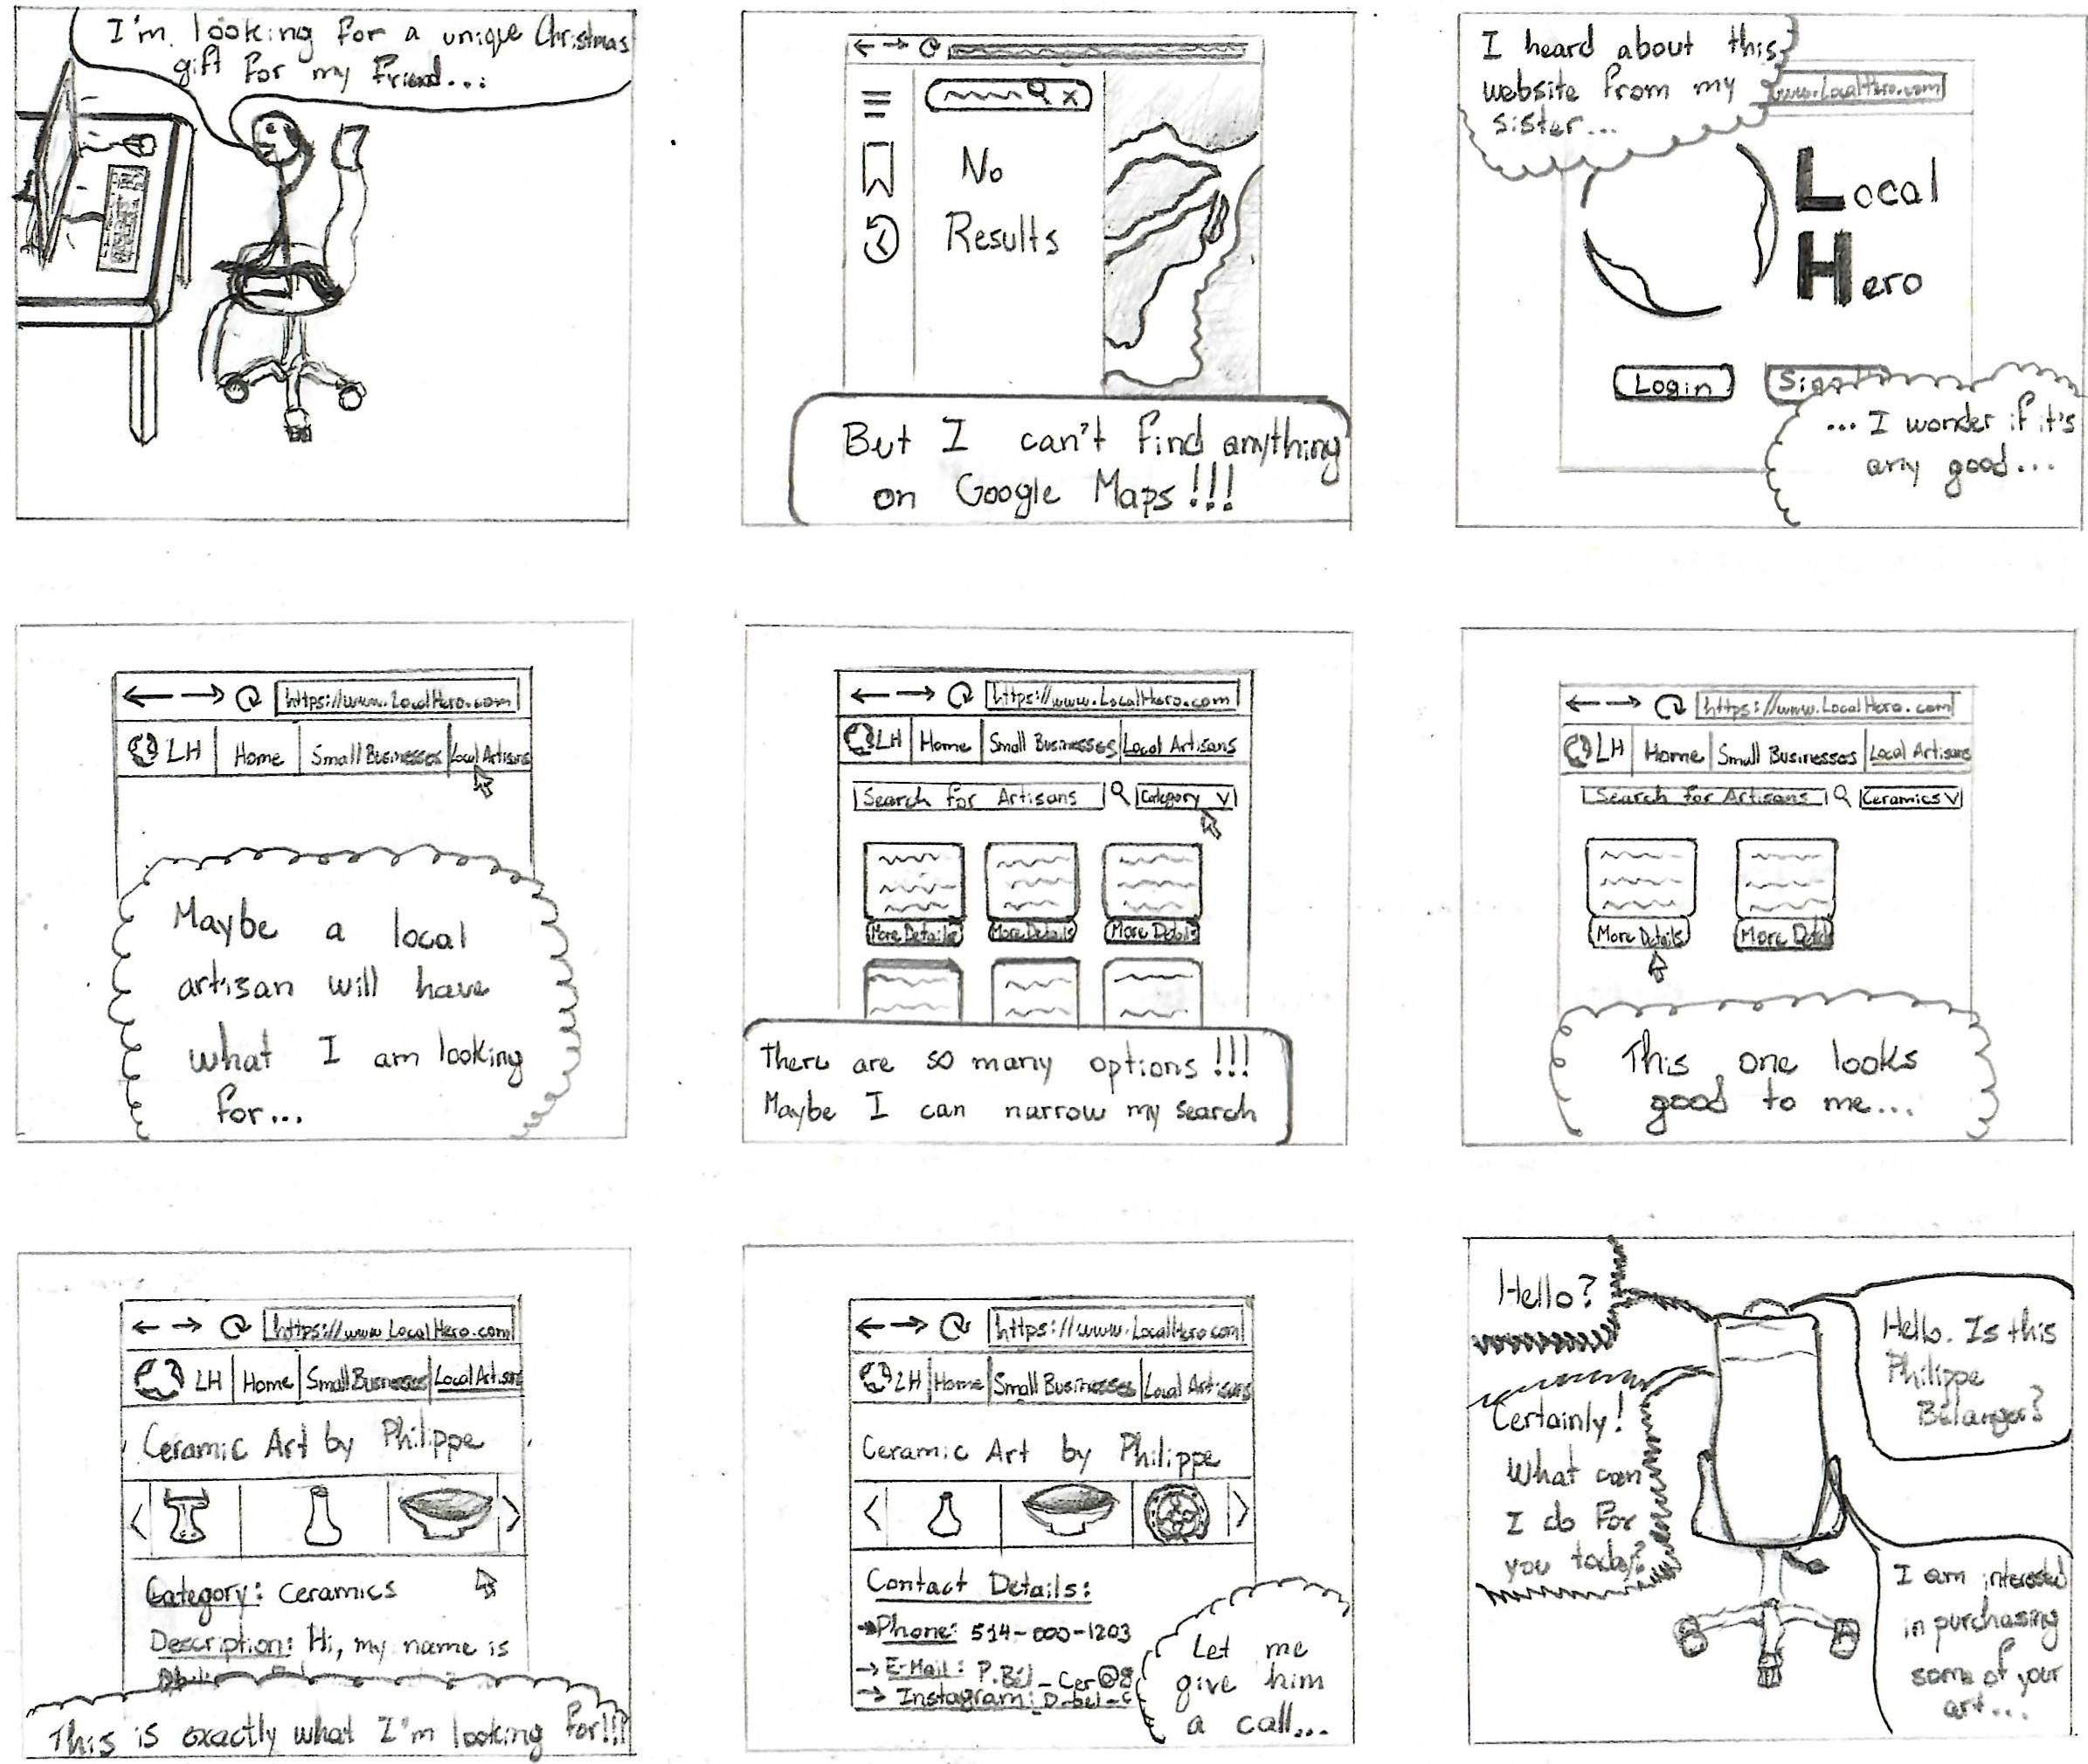 I'm looking for a unique Christmas
gift for my friend...
No
Results
But I can't find anything
on Google Maps!!!
I heard about this
website from my
sister...
www.LocalHero.com
Local
Hero
Login
Sign
... I wonder if it's
any good...
https://www.LocalHero.com
LH Home Small Businesses Local Artisans
Maybe a local
artisan will have
what I am looking
for...
https://www.LocalHero.com
LH Home Small Businesses Local Artisans
Search for Artisans Category V
More Details More Details More Details
There are so many options!!!
Maybe I can narrow my search
https://www.LocalHero.com
LH Home Small Businesses Local Artisans
Search for Artisans Ceramics V
More Details More Details
This one looks
good to me...
https://www.LocalHero.com
LH Home Small Businesses Local Artisans
Ceramic Art by Philippe
Category: Ceramics
Description: Hi, my name is
This is exactly what I'm looking for!!!
https://www.LocalHero.com
LH Home Small Businesses Local Artisans
Ceramic Art by Philippe
Contact Details:
→Phone: 514-000-1203
→ E-Mail: P.Bél_Cer@g
→ Instagram:
Let me
give him
a call...
Hello?
Hello. Is this
Philippe
Bélanger?
Certainly!
What can
I do for
you today?
I am interested
in purchasing
some of your
art...